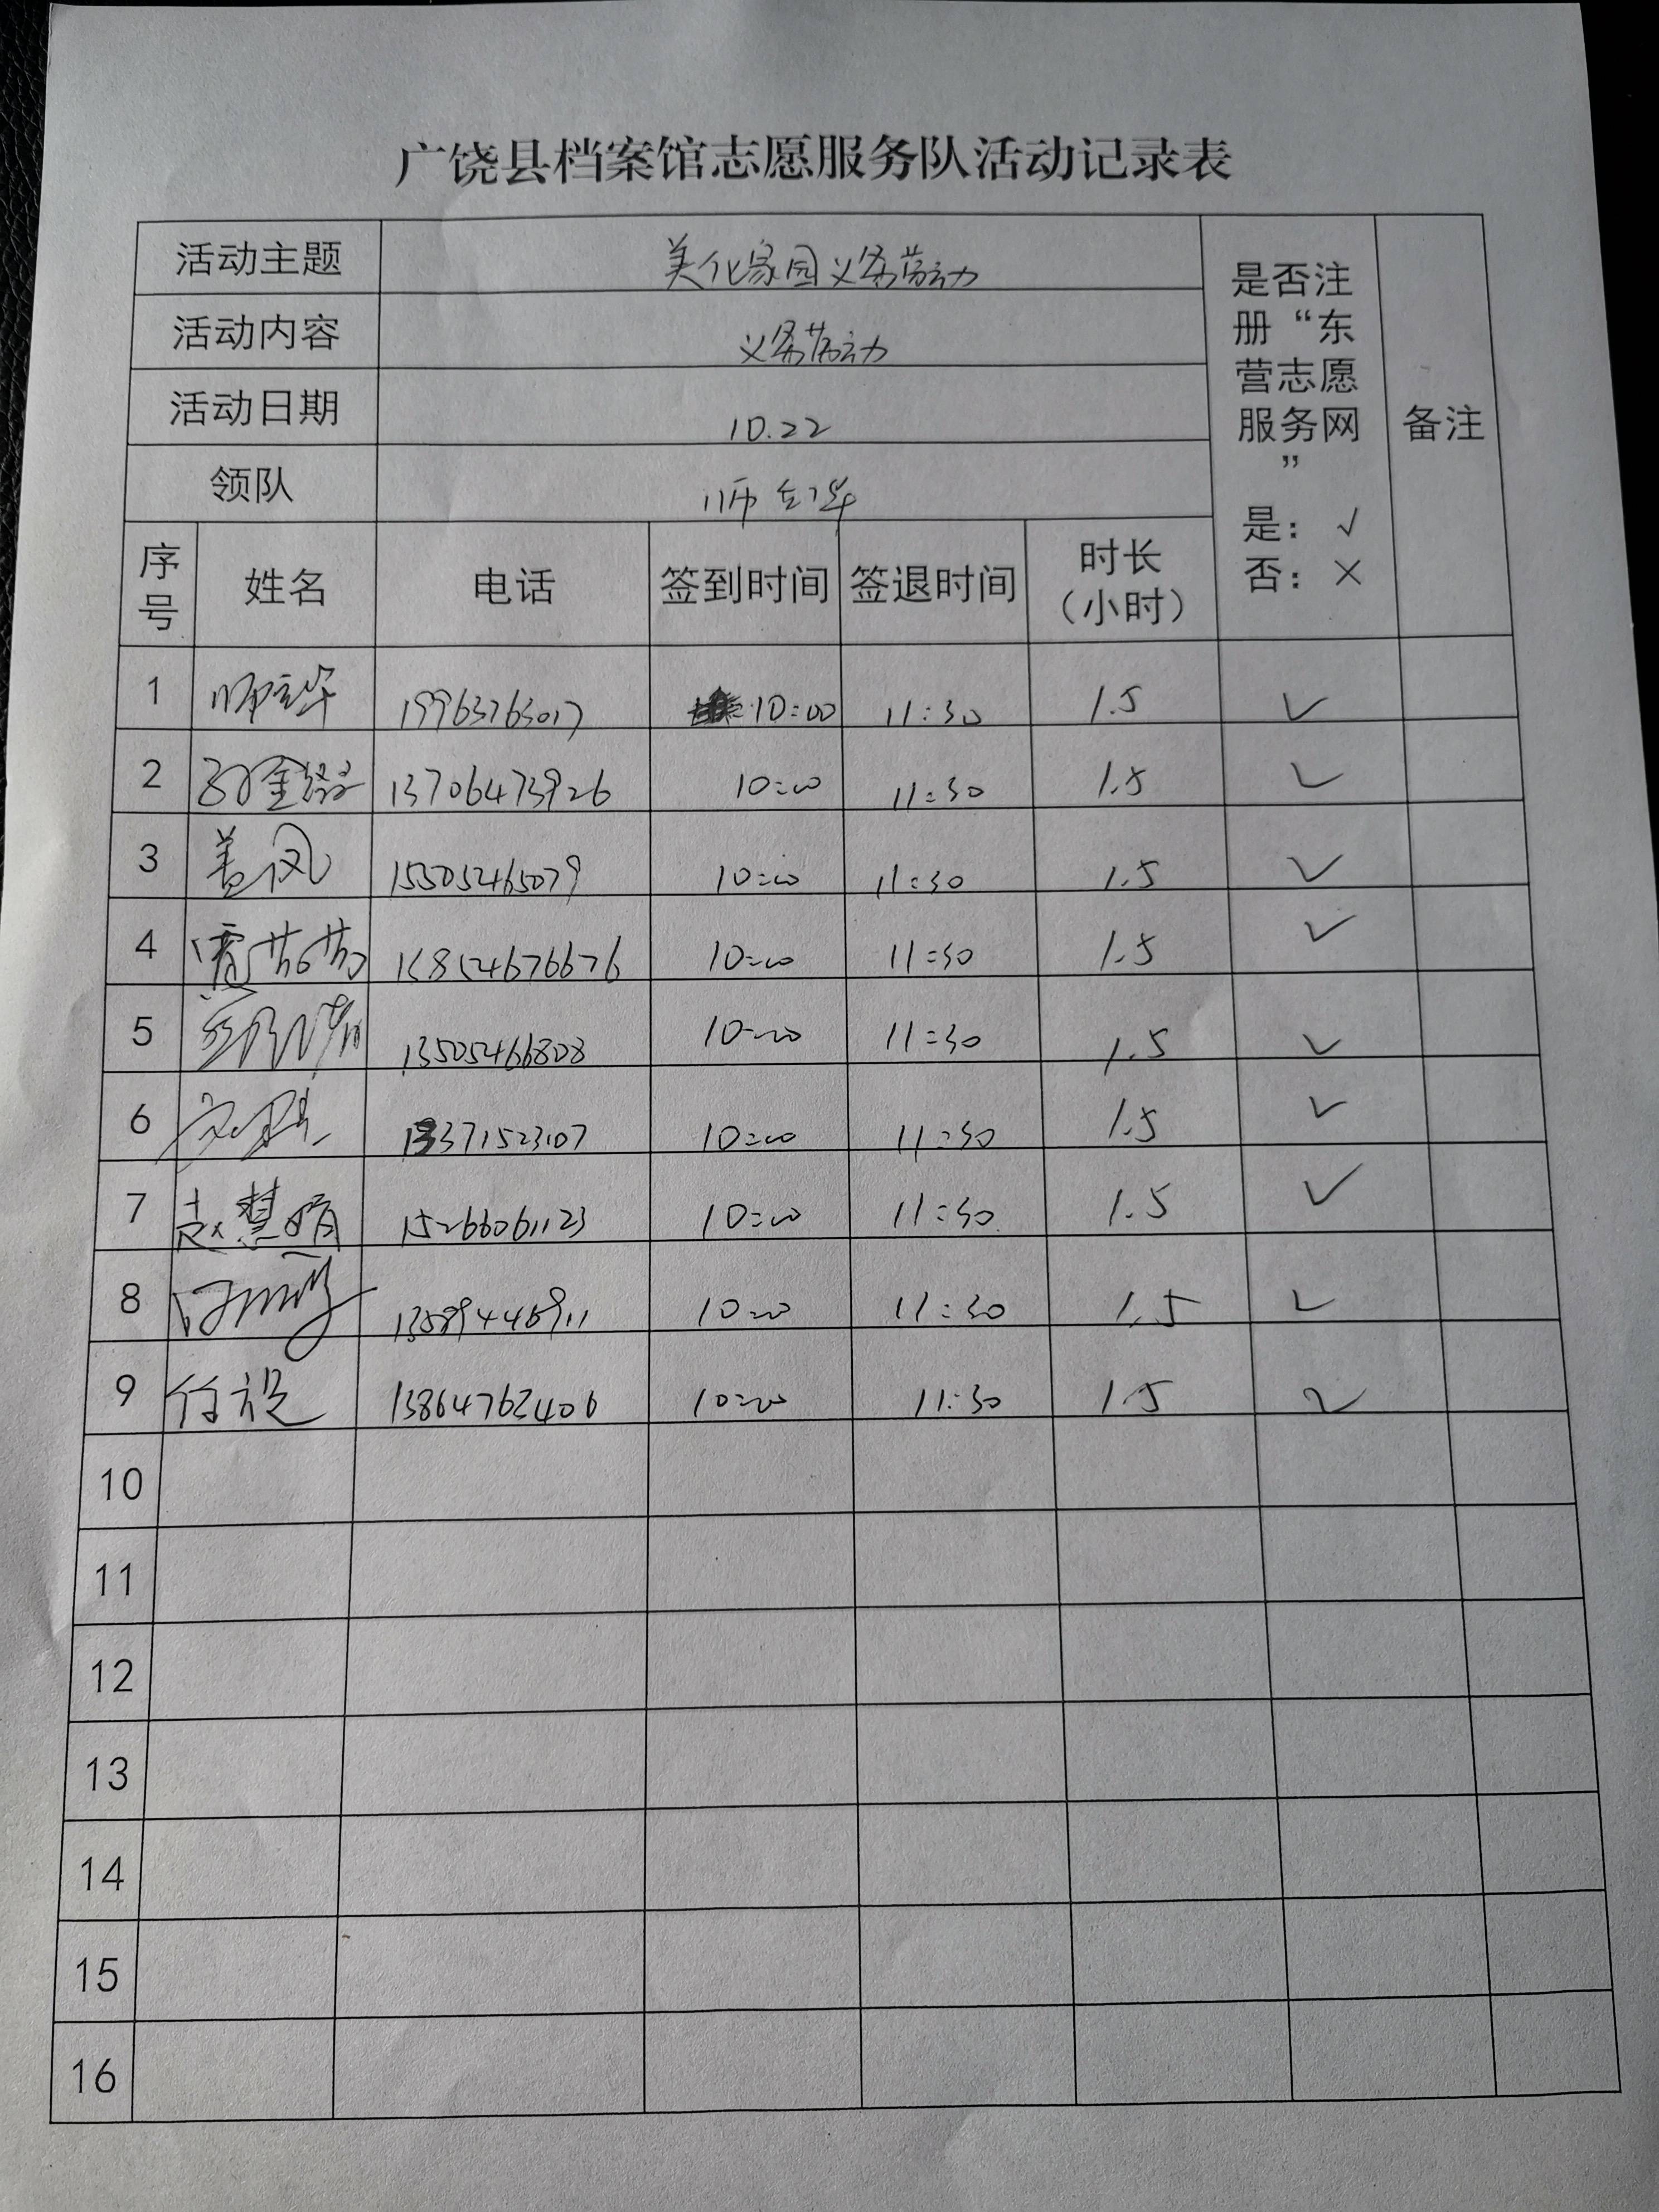 广饶县档案馆志愿服务队活动记录表
活动主题 美化家园义务劳动
活动内容 义务劳动
活动日期 10.22
领队 师
是否注
册“东
营志愿
服务网
”
是：√
否：×
备注
序号 姓名 电话 签到时间 签退时间 时长（小时）
1 19963763017 10:00 11:30 1.5 ✓
2 13706473926 10:00 11:30 1.5 ✓
3 15505465079 10:00 11:30 1.5 ✓
4 10:00 11:30 1.5 ✓
5 13505466808 10:00 11:30 1.5 ✓
6 13371523107 10:00 11:30 1.5 ✓
7 赵慧 15266061123 10:00 11:30 1.5 ✓
8 10:00 11:30 1.5 ✓
9 13864762406 10:00 11:30 1.5 ✓
10
11
12
13
14
15
16